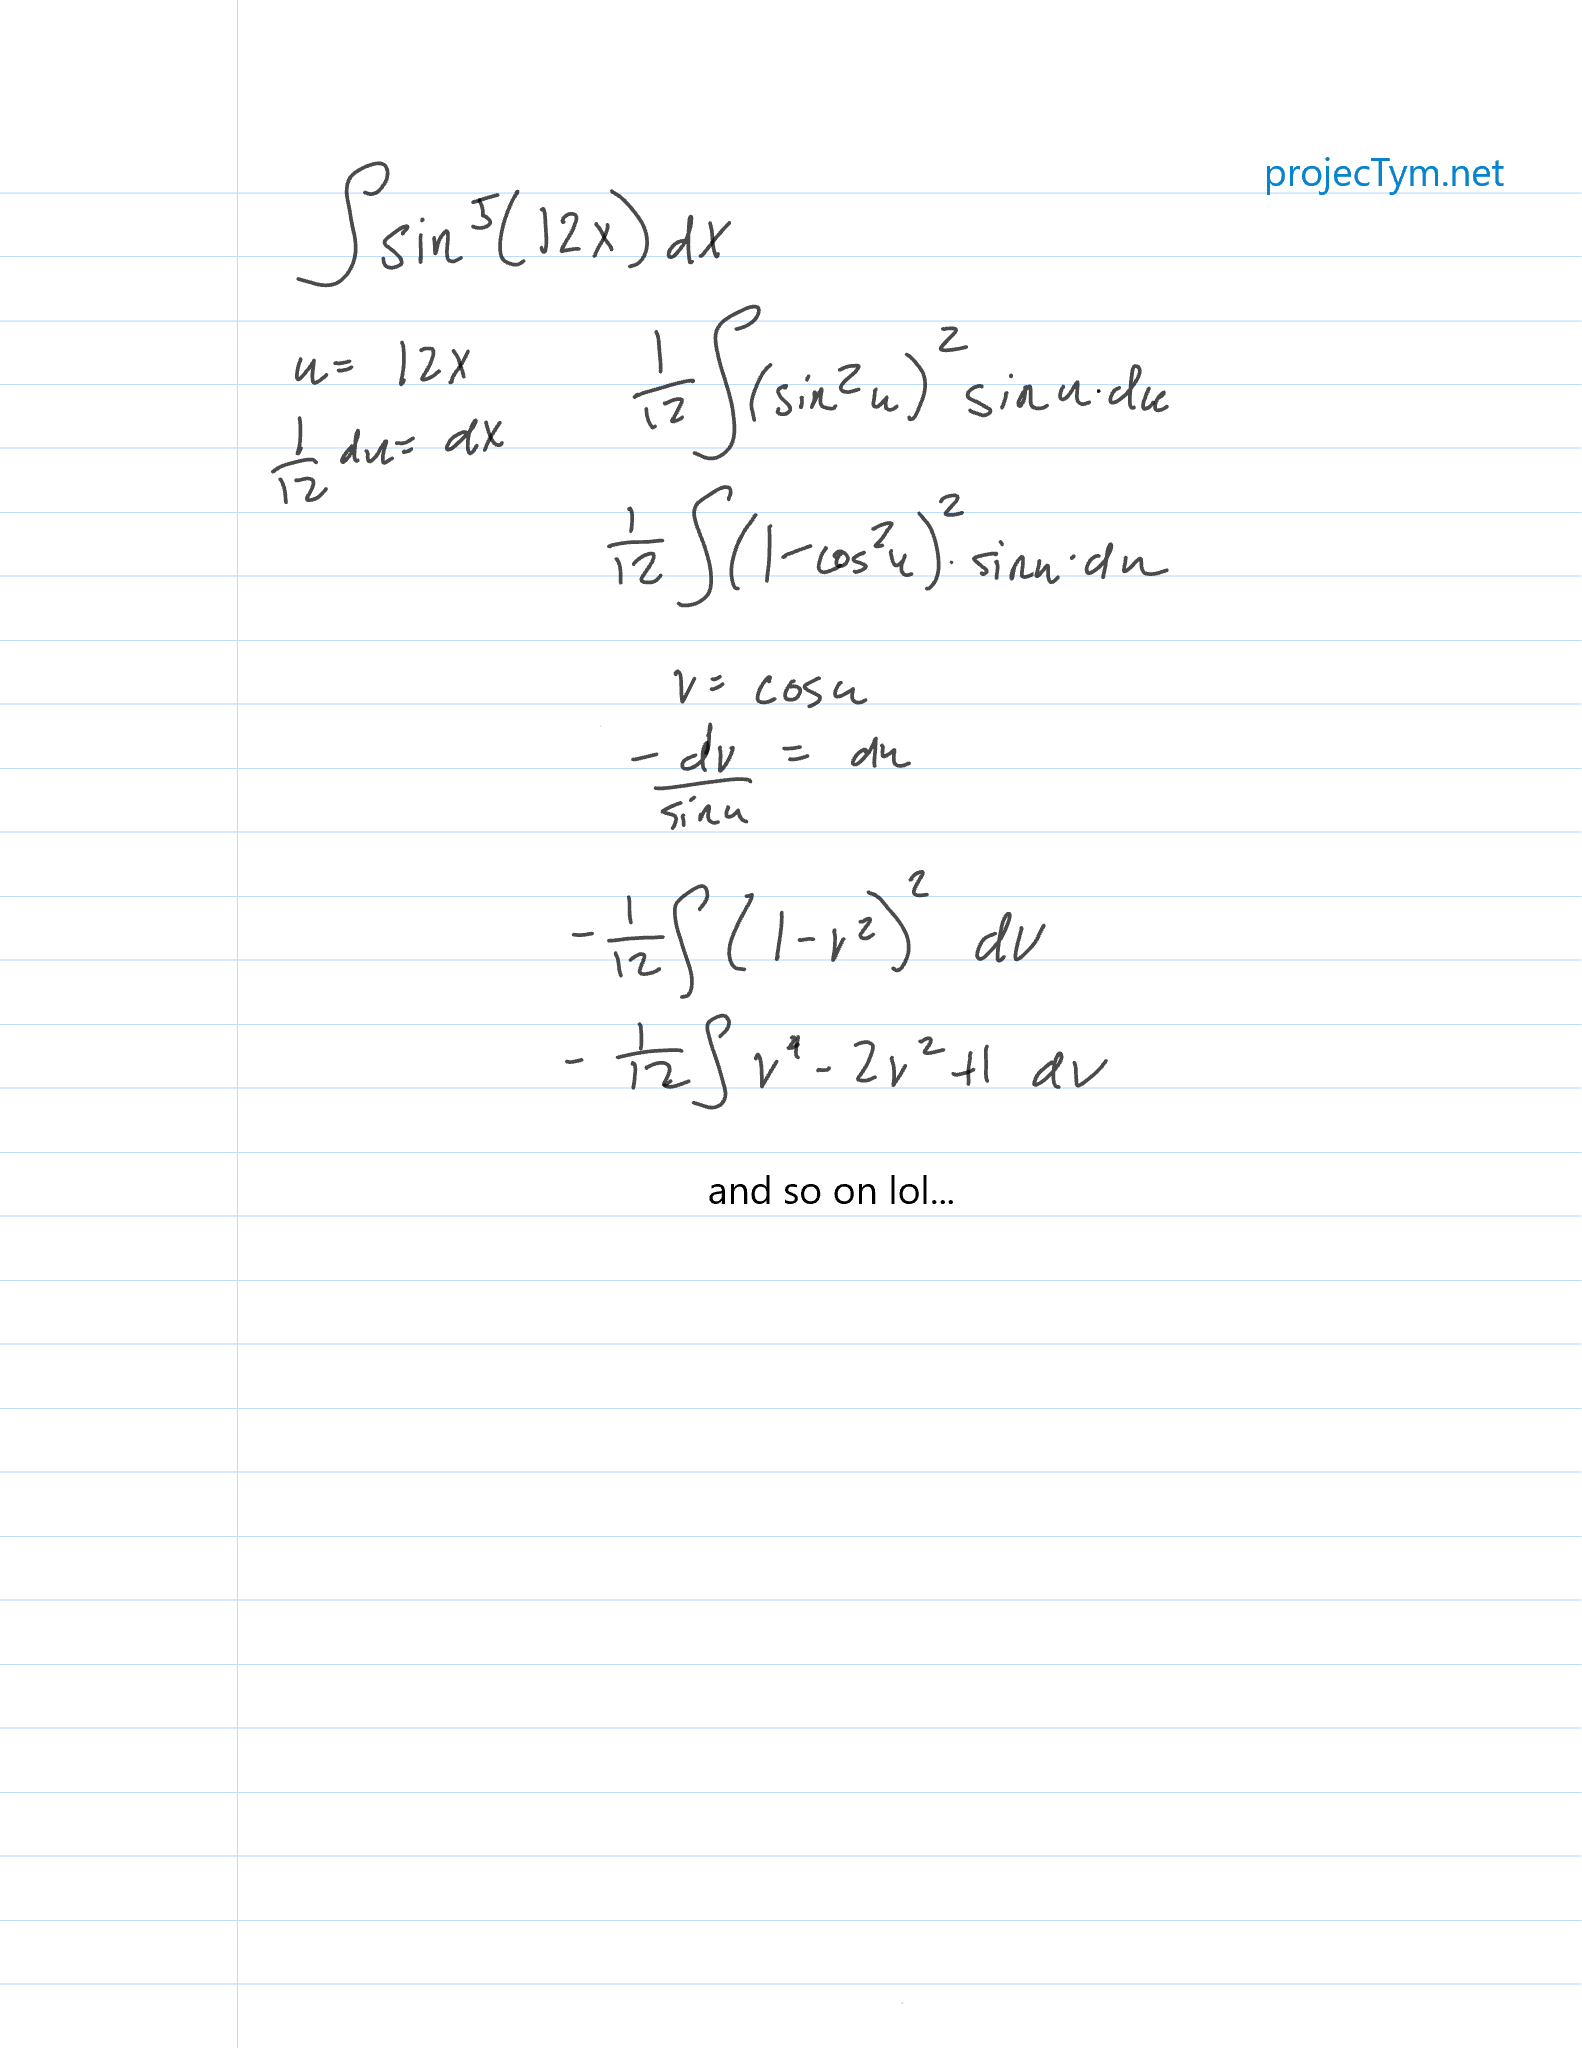 projecTym.net
∫ sin⁵(12x) dx
u = 12x
1/12 du = dx
1/12 ∫ (sin² u)² sin u · du
1/12 ∫ (1 - cos² u)² · sin u · du
v = cos u
- dv/sin u = du
- 1/12 ∫ (1 - v²)² dv
- 1/12 ∫ v⁴ - 2v² + 1 dv
and so on lol...